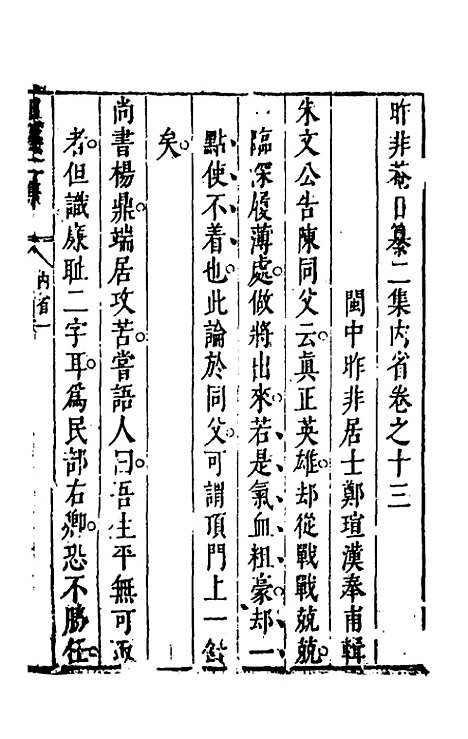 昨非菴日纂二集內省卷之十三
閩中昨非居士鄭瑄漢奉甫輯
朱文公告陳同父云真正英雄却從戰戰兢兢
臨深履薄處做將出來若是氣血粗豪却一
點使不着也此論於同父可謂頂門上一針
矣
尚書楊鼎端居攻苦嘗語人曰吾生平無可取
者但識廉恥二字耳爲民部右卿恐不勝任
內省一